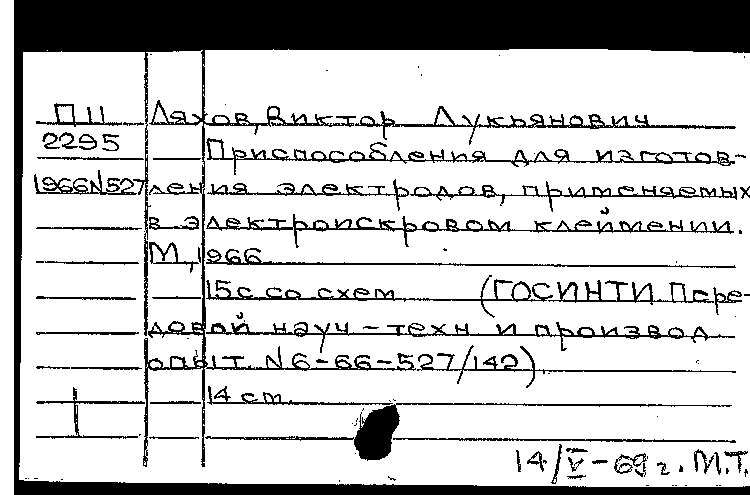 П11 Ляхов, Виктор Лукьянович
2295 Приспособления для изготов-
1966N527 ления электродов, применяемых
в электроискровом клеймении.
М., 1966.
15с со схем. (ГОСИНТИ. Пере-
довой науч-техн и производ
опыт. N6-66-527/142)
14 см.
14/V-69 г. М.Т.